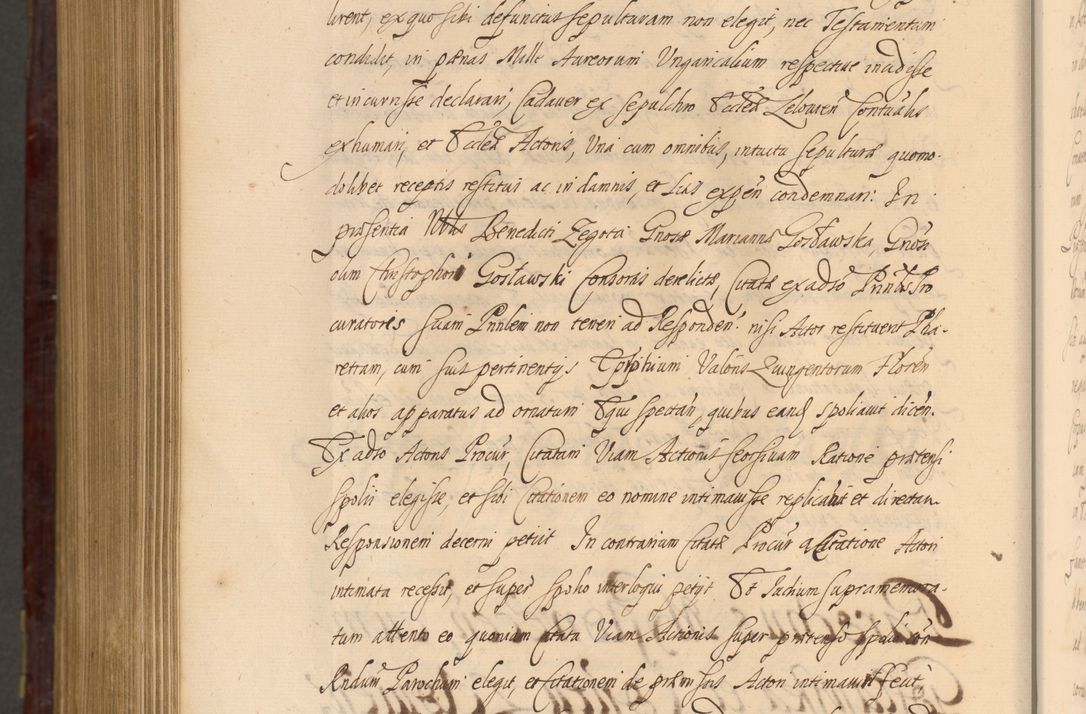 urent, ex quo sibi defunctus sepulturam non elegit, nec Testamentum
condidit, in pænas Mille Aureorum Ungaricalium respective incidisse
et incurrisse declarari, Cadaver ex sepulchro Eccleæ Conventualis
exhumari, et Eccleæ Actoris, Una cum omnibus, intuitu sepulturæ quomo-
dolibet receptis restitui ac in damnis, et Luis expen condemnari: In
præsentia Benedicti Zegota Gnosæ Mariannæ Gosławska, Gnosi
olim Christophori Gosławski Consortis derelictæ, Citatæ ex adso Pro
curatores suam Pnnlem non teneri ad Responden: nisi Actor restituent Pha-
retram, cum suis pertinentijs Valoris Quingentorum Floren
et alios apparatus ad ornatum Equi spectan, quibus eand spoliavit dicen.
Ex adso Actoris Procur, Citatam Viam Actionis seorsivam Ratione prætensi
spolii elegisse, et sibi Citationem eo nomine intimavisse replicavit et directam
Responsionem decerni petiit In contrarium Citatæ Procur a Citatione Actori
intimata recessit, et super spolio interloqui petijt Et Judium supramemora-
tum attento eo quoniam Citata Viam Actionis super prætenso spolio
Rndum Parochum elegit, et Citationem de præmissis Actori intimavit fecit